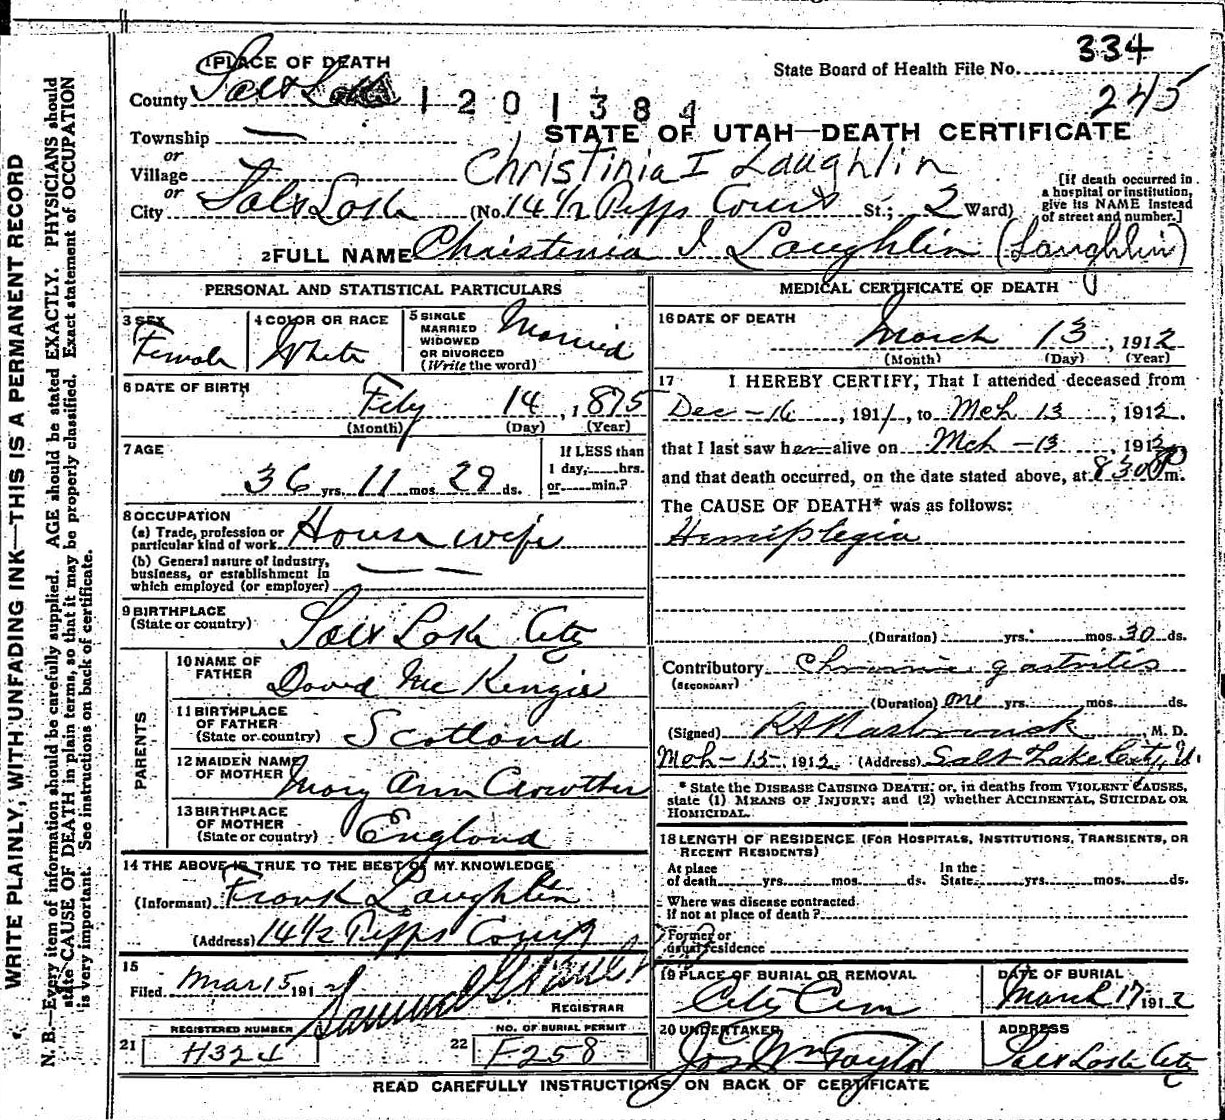 334
State Board of Health File No.
245
1 PLACE OF DEATH
County Salt Lake
1201384
STATE OF UTAH—DEATH CERTIFICATE
Township —
or
Village
Christinia I Laughlin
or
City Salt Lake (No. 14 1/2 Pipps Court St.; 2 Ward)
[If death occurred in
a hospital or institution,
give its NAME instead
of street and number.]
2 FULL NAME Christenia I Laughlin (Laughlin)
PERSONAL AND STATISTICAL PARTICULARS
3 SEX
Female
4 COLOR OR RACE
White
5 SINGLE
MARRIED
WIDOWED
OR DIVORCED
(Write the word)
Married
6 DATE OF BIRTH
Feby 14, 1875
(Month) (Day) (Year)
7 AGE
36 yrs. 11 mos. 29 ds.
If LESS than
1 day,......hrs.
or......min.?
8 OCCUPATION
(a) Trade, profession or
particular kind of work House wife
(b) General nature of industry,
business, or establishment in
which employed (or employer) — —
9 BIRTHPLACE
(State or country) Salt Lake City
PARENTS
10 NAME OF
FATHER David McKenzie
11 BIRTHPLACE
OF FATHER
(State or country) Scotland
12 MAIDEN NAME
OF MOTHER Mary Ann Crowther
13 BIRTHPLACE
OF MOTHER
(State or country) England
14 THE ABOVE IS TRUE TO THE BEST OF MY KNOWLEDGE
(Informant) Frank Laughlin
(Address) 14 1/2 Pipps Court
15
Filed Mar 15 1912
Samuel G.
REGISTRAR
REGISTERED NUMBER
21 H324
NO. OF BURIAL PERMIT
22 F258
MEDICAL CERTIFICATE OF DEATH
16 DATE OF DEATH
March 13, 1912
(Month) (Day) (Year)
17 I HEREBY CERTIFY, That I attended deceased from
Dec - 16, 1911, to Mch 13, 1912.
that I last saw her alive on Mch - 13 1912
and that death occurred, on the date stated above, at 8 30 P m.
The CAUSE OF DEATH* was as follows:
Hemiplegia
(Duration) yrs. mos. 30 ds.
Contributory Chronic gastritis
(SECONDARY)
(Duration) one yrs. mos. ds.
(Signed) R A Hasbrouck, M. D.
Mch - 15 - , 1912 (Address) Salt Lake City, U.
* State the DISEASE CAUSING DEATH; or, in deaths from VIOLENT CAUSES,
state (1) MEANS OF INJURY; and (2) whether ACCIDENTAL, SUICIDAL OR
HOMICIDAL.
18 LENGTH OF RESIDENCE (FOR HOSPITALS, INSTITUTIONS, TRANSIENTS, OR
RECENT RESIDENTS)
At place
of death yrs. mos. ds.
In the
State yrs. mos. ds.
Where was disease contracted
if not at place of death?
Former or
usual residence
19 PLACE OF BURIAL OR REMOVAL
City Cem
DATE OF BURIAL
March 17 1912
20 UNDERTAKER
Jos Wm Taylor
ADDRESS
Salt Lake City
READ CAREFULLY INSTRUCTIONS ON BACK OF CERTIFICATE
WRITE PLAINLY, WITH UNFADING INK—THIS IS A PERMANENT RECORD
N. B.—Every item of information should be carefully supplied. AGE should be stated EXACTLY. PHYSICIANS should
state CAUSE OF DEATH in plain terms, so that it may be properly classified. Exact statement of OCCUPATION
is very important. See instructions on back of certificate.